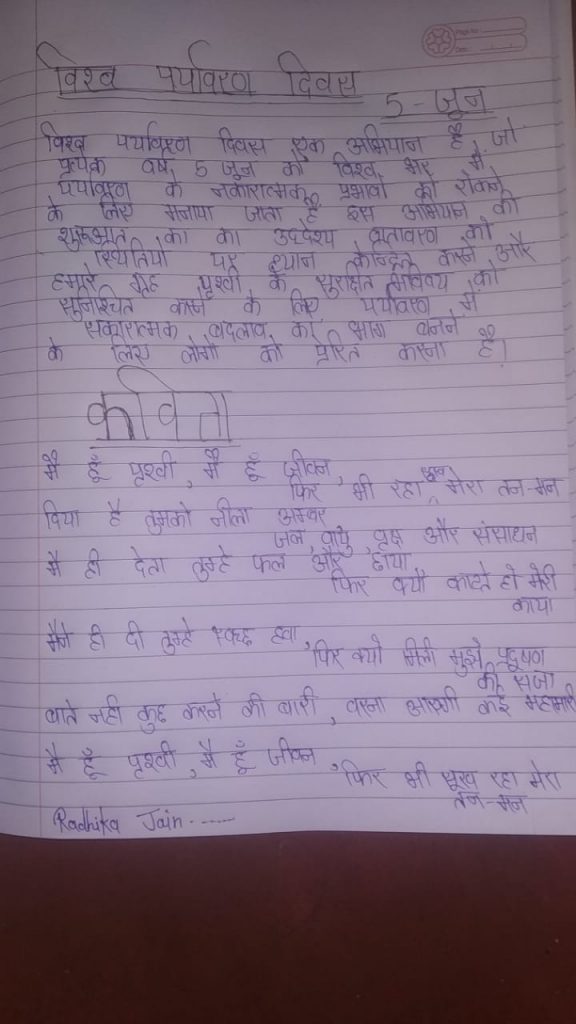 Page No.
Date
विश्व पर्यावरण दिवस
5 - जून
विश्व पर्यावरण दिवस एक अभियान है जो
प्रत्येक वर्ष 5 जून को विश्व भर में
पर्यावरण के नकारात्मक प्रभावों को रोकने
के लिए मनाया जाता है इस अभियान की
शुरुआत का का उद्देश्य वातावरण की
स्थितियों पर ध्यान केन्द्रित करने और
हमारे ग्रह पृथ्वी के सुरक्षित भविष्य को
सुनिश्चित करने के लिए पर्यावरण में
सकारात्मक बदलाव का भाग बनने
के लिए लोगों को प्रेरित करना है।
कविता
मैं हूँ पृथ्वी, मैं हूँ जीवन,
फिर भी रहा सूख मेरा तन-मन
दिया है तुमको नीला अम्बर
जल, वायु, वृक्ष और संसाधन
मैं ही देता तुम्हे फल और छाया
फिर क्यों काटते हो मेरी
काया
मैंने ही दी तुम्हे स्वच्छ हवा,
फिर क्यों मिली मुझे प्रदूषण
की सजा
बाते नही कुछ करने की बारी, वरना आएगी कई महामारी
मैं हूँ पृथ्वी, मैं हूँ जीवन,
फिर भी सूख रहा मेरा
तन-मन
Radhika Jain.----